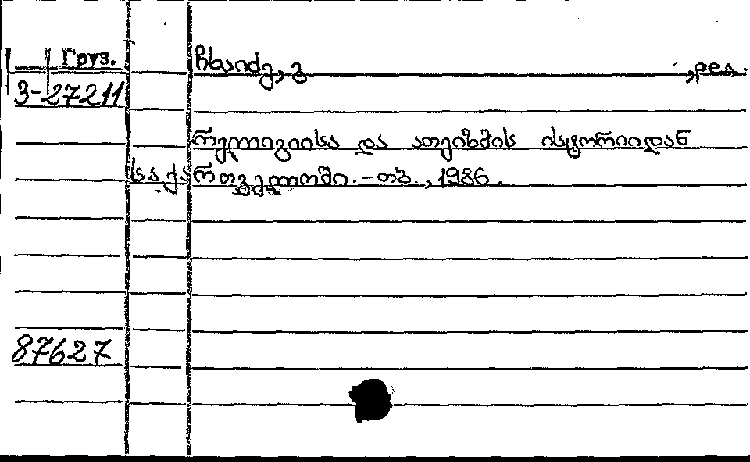 Груз.
ჩხაიძე, გ , ред.
3-27211
რელიგიისა და ათეიზმის ისტორიიდან
საქართველოში. - თბ., 1986.
87627